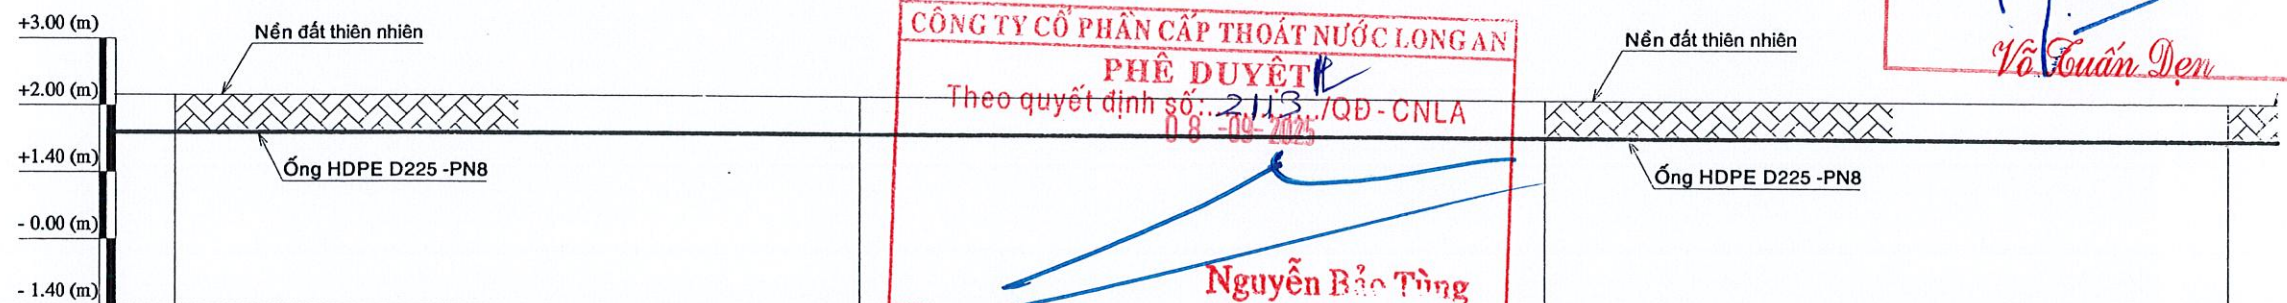 +3.00 (m)
Nền đất thiên nhiên
+2.00 (m)
+1.40 (m)
Ống HDPE D225 -PN8
- 0.00 (m)
- 1.40 (m)
CÔNG TY CỔ PHẦN CẤP THOÁT NƯỚC LONG AN
PHÊ DUYỆT
Theo quyết định số: 2113 /QĐ - CNLA
08 -09- 2025
Nguyễn Bảo Tùng
Nền đất thiên nhiên
Ống HDPE D225 -PN8
Võ Tuấn Dẹn